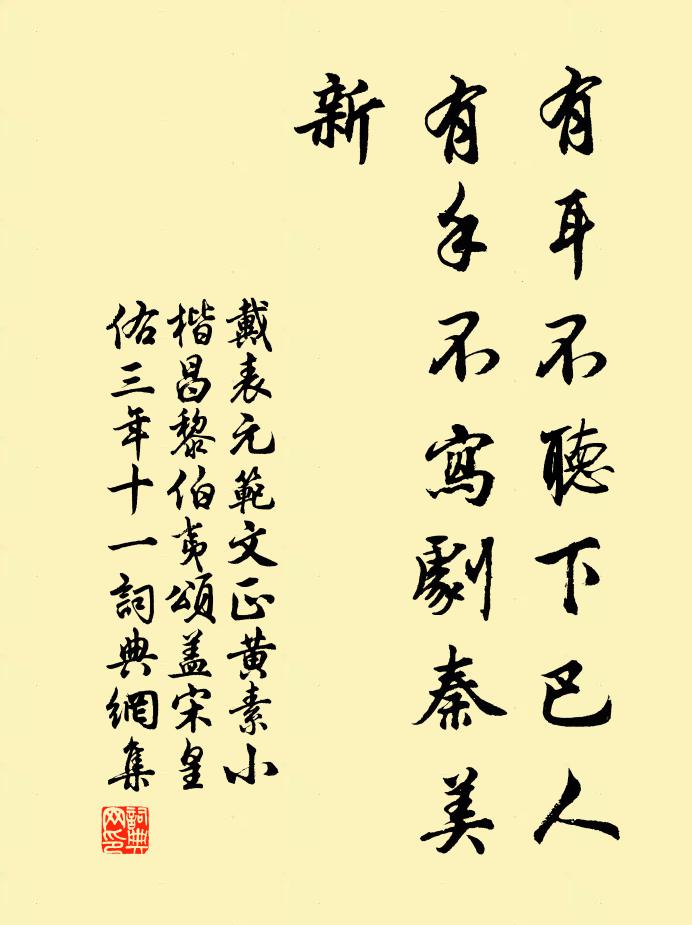 有耳不聽下巴人
有手不寫劇秦美
新
戴表元範文正黄素小
楷昌黎伯夷頌盖宋皇
佑三年十一詞典網集
詞典
网印